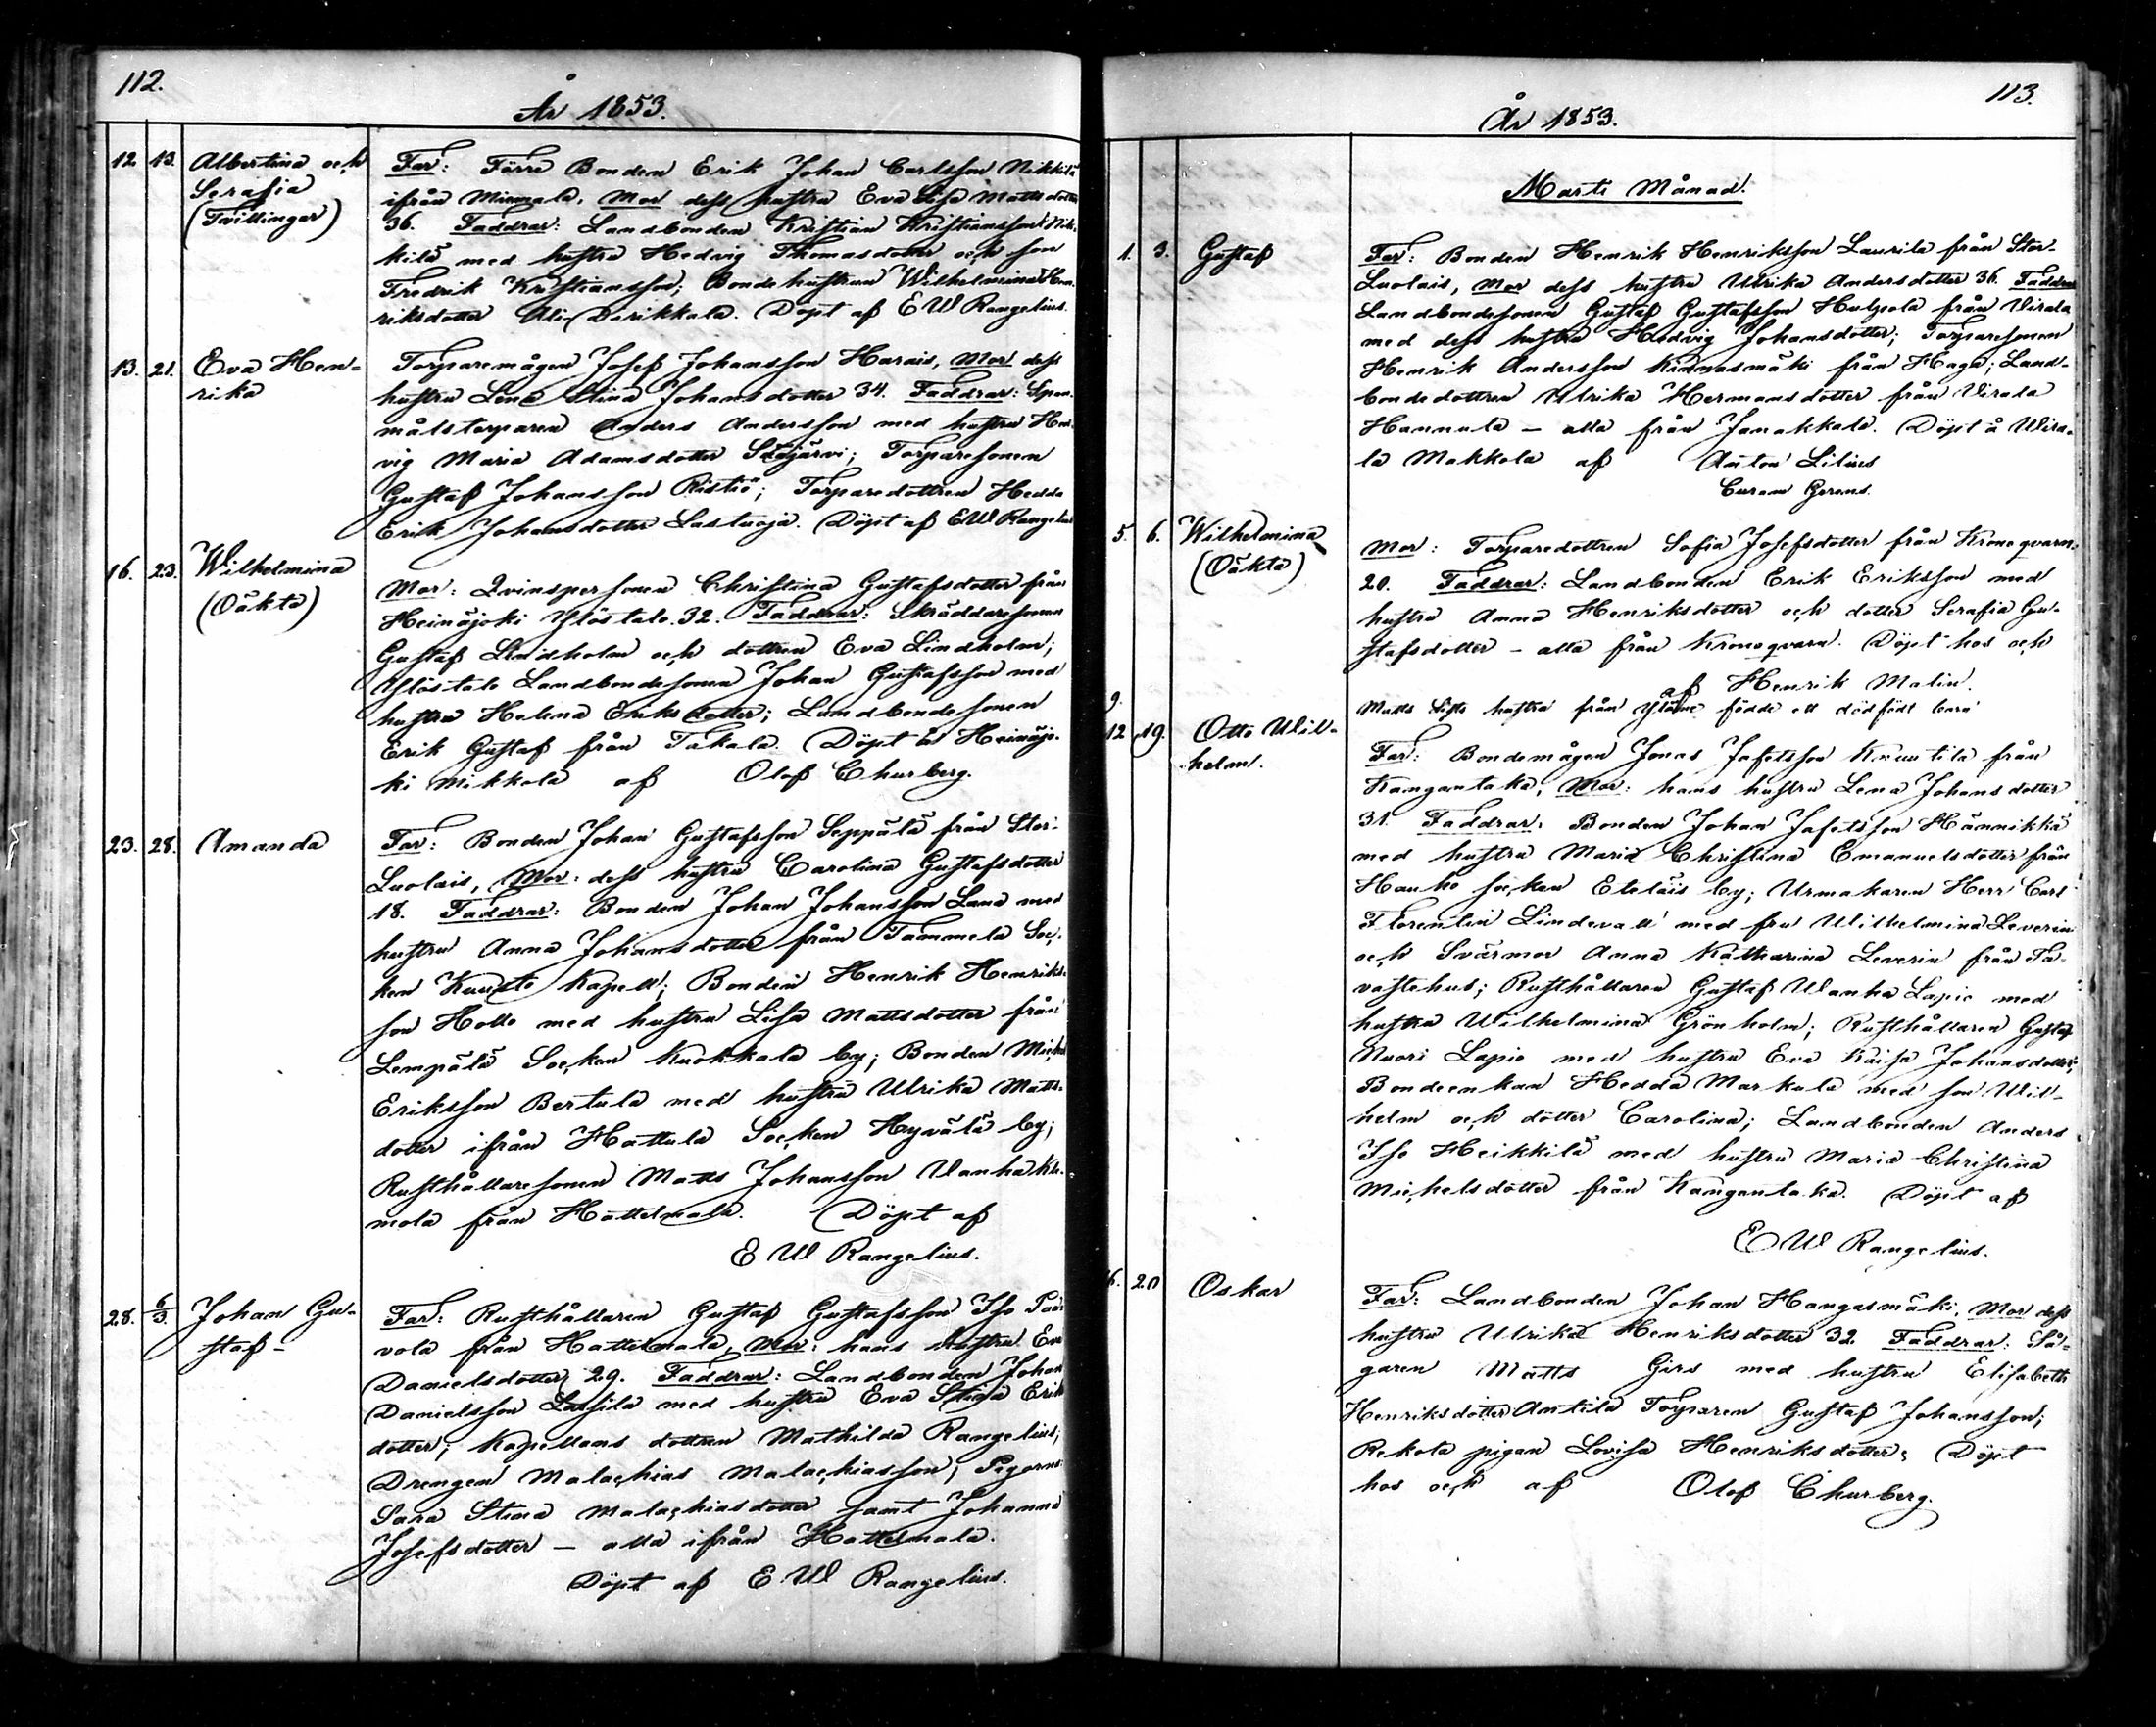 112.
År 1853.
12. 13. Albertina och Serafia (Tvillingar)
Far: Förre Bonden Erik Johan Carlsson Nikkilä
ifrån Miemala, Mor dess hustru Eva Lisa Mattsdotter
36. Faddrar: Landbonden Kristian Kristiansson Nik-
kilä med hustru Hedvig Thomasdotter och son
Fredrik Kristiansson; Bondehustrun Wilhelmina Hen-
riksdotter Ali-Dirikkala. Döpt af E W Rangelius.
13. 21. Eva Hen-
rika
Torparemågen Josef Johansson Harais, Mor dess
hustru Lena Stina Johansdotter 34. Faddrar: Span-
målstorparen Anders Andersson med hustru Hed-
vig Maria Adamsdotter Sääjärvi; Torparesonen
Gustaf Johansson Ristiö; Torparedottren Hedda
Erik Johansdotter Lastuoja. Döpt af E W Rangelius
16. 23. Wilhelmina
(Oäkta)
Mor: Qvinspersonen Christina Gustafsdotter från
Heinäjoki Ylöstalo. 32. Faddrar: Skräddaresonen
Gustaf Lindholm och dottren Eva Lindholm;
Ylöstalo Landbondesonen Johan Gustafsson med
hustru Helena Eriksdotter; Landbondesonen
Erik Gustaf från Takala. Döpt å Heinäjo-
ki Mikkola af Olof Churberg.
23. 28. Amanda
Far: Bonden Johan Gustafsson Seppälä från Stor-
Luolais, Mor: dess hustru Carolina Gustafsdotter
18. Faddrar: Bonden Johan Johansson Lana med
hustru Anna Johansdotter från Tammela Soc-
ken Kuusto Kapell; Bonden Henrik Henriks-
son Hollo med hustru Lisa Mattsdotter från
Lempälä Socken Kuokkala by; Bonden Michel
Eriksson Bertula med hustru Ulrika Matts-
dotter ifrån Hattula Socken Hyvälä by;
Rusthållaresonen Matts Johansson Wanha Kii-
mola från Hattelmala. Döpt af
E W Rangelius.
28. 6/3 Johan Gu-
staf -
Far: Rusthållaren Gustaf Gustafsson Iso Paa-
vola från Hattelmala, Mor: hans hustru Eva
Danielsdotter 29. Faddrar: Landbonden Johan
Danielsson Lassila med hustru Eva Stina Eriks
dotter; Kapellans dottren Mathilda Rangelius;
Drengen Malachias Malachiasson; Pigorne
Sara Stina Malachiasdotter samt Johanna
Josefsdotter - alla ifrån Hattelmala.
Döpt af E W Rangelius.
113.
År 1853.
Marti Månad.
1. 3. Gustaf
Far: Bonden Henrik Henriksson Laurila från Stor-
Luolais, Mor dess hustru Ulrika Andersdotter 36. Faddrar
Landbondesonen Gustaf Gustafsson Hulpola från Virala
med dess hustru Hedvig Johansdotter; Torparesonen
Henrik Andersson Kinnasmäki från Haga; Land-
bondedottren Ulrika Hermansdotter från Virala
Hannula - alla från Janakkala. Döpt å Wira-
la Makkola af Anton Lilius
Curam Gerens.
5. 6. Wilhelmina
(Oäkta)
Mor: Torparedottren Sofia Josefsdotter från Kronoqvarn:
20. Faddrar: Landbonden Erik Eriksson med
hustru Anna Henriksdotter och dotter Serafia Gu-
stafsdotter - alla från Kronoqvarn. Döpt hos och
af Henrik Malin.
9. Matts hustru från födde ett dödfödt barn
12 19. Otto Wil-
helm.
Far: Bondemågen Jonas Jafetsson Knuutila från
Kangantaka, Mor: hans hustru Lena Johansdotter
31. Faddrar: Bonden Johan Jafetsson Hännikkä
med hustru Maria Christina Emanuelsdotter från
Hauho socken Eteläis by; Urmakaren Herr Carl
Florentin Lindevall med fru Wilhelmina Leverin
och Svärmor Anna Katharina Leverin från Ta-
vastehus; Rusthållaren Gustaf Wanha Lapio med
hustru Wilhelmina Grönholm; Rusthållaren Gustaf
Nuori Lapio med hustru Eva Kaisa Johansdotter;
Bondeenkan Hedda Markula med son Wil-
helm och dotter Carolina; Landbonden Anders
Iso Heikkilä med hustru Maria Christina
Michelsdotter från Kangantaka. Döpt af
E W Rangelius.
6. 20 Oskar
Far: Landbonden Johan Hangasmäki, Mor dess
hustru Ulrika Henriksdotter 32. Faddrar: Så-
garen Matts Girs med hustru Elisabeth
Henriksdotter Antila Torparen Gustaf Johansson;
Rekola pigan Lovisa Henriksdotter; Döpt
hos och af Olof Churberg.